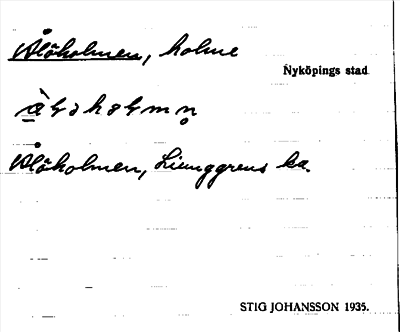 Ålöholmen, holme
Nyköpings stad
Ålöholmen, Ljunggrens ka.
STIG JOHANSSON 1935.